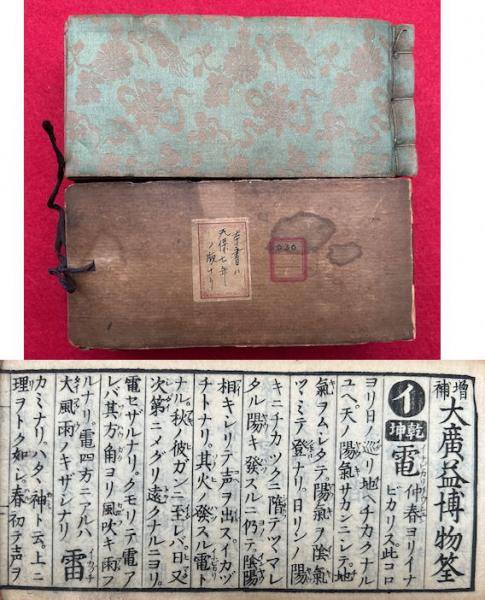 本書ハ
天保七年
ノ版ナリ
増補 大廣益博物筌
イ 乾坤 電 仲春ヨリイナ
ビカリス此コロ
ヨリ日ノ巡リ地ヘチカクナル
ユヘ天ノ陽氣サカンニシテ地
氣ヲムシタテ陽氣ヲ陰氣
ツヽミテ登ナリ日リンノ陽
キニチカツクニ階テツマレ
タル陽キ發スルニ仍テ陰陽
相キシリテ声ヲ出ス。イカヅ
チトナリ。其火ノ發スル電ト
ナル秋ノ彼ガンニ至レバ。日又
次第ニメグリ遠クナルニヨリ。
電セザルナリ。クモリテ電ア
レバ其方角ヨリ風吹キ雨フ
ルナリ。電四方ニアルハ
大風雨ノキザシナリ 雷
カミナリ。ハタヽ神ト云。上ニ
理ヲトク如シ。春初テ声ヲ